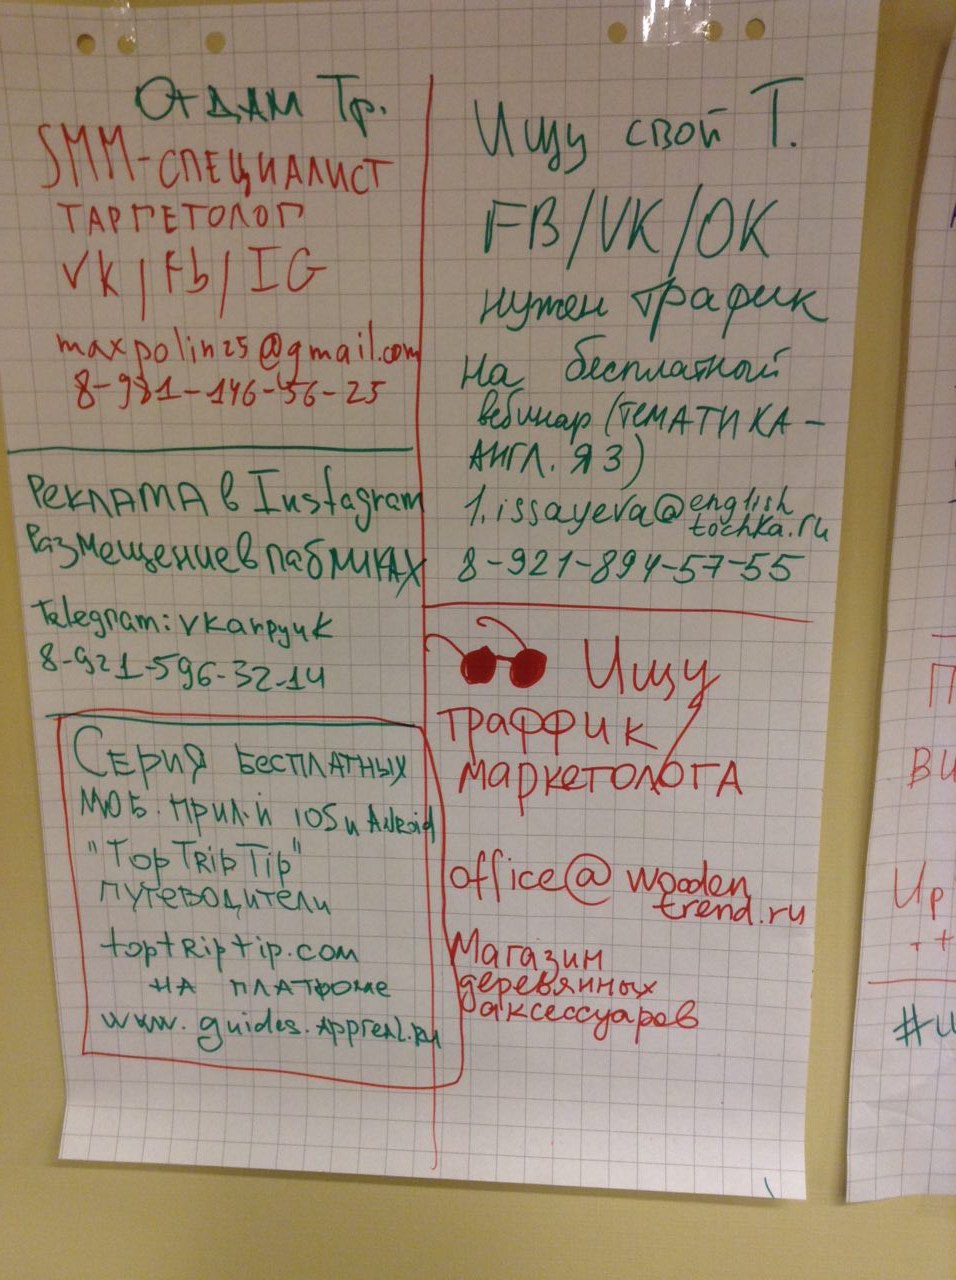 Отдам Тр.
SMM-СПЕЦИАЛИСТ
ТАРГЕТОЛОГ
VK / Fb / IG
maxpolin25@gmail.com
8-981-146-56-25
Реклама в Instagram
Размещение в пабликах
Telegram: vkarpyuk
8-921-596-32-14
Серия бесплатных
моб. прил-й iOS и Android
"TopTripTip"
путеводители
toptriptip.com
на платформе
www.guides.appreal.ru
Ищу свой Т.
FB/VK/OK
нужен трафик
на бесплатный
вебинар (ТЕМАТИКА -
АНГЛ. ЯЗ)
1.issayeva@english
tochka.ru
8-921-894-57-55
Ищу
траффик
маркетолога
office@wooden
trend.ru
Магазин
деревянных
аксессуаров